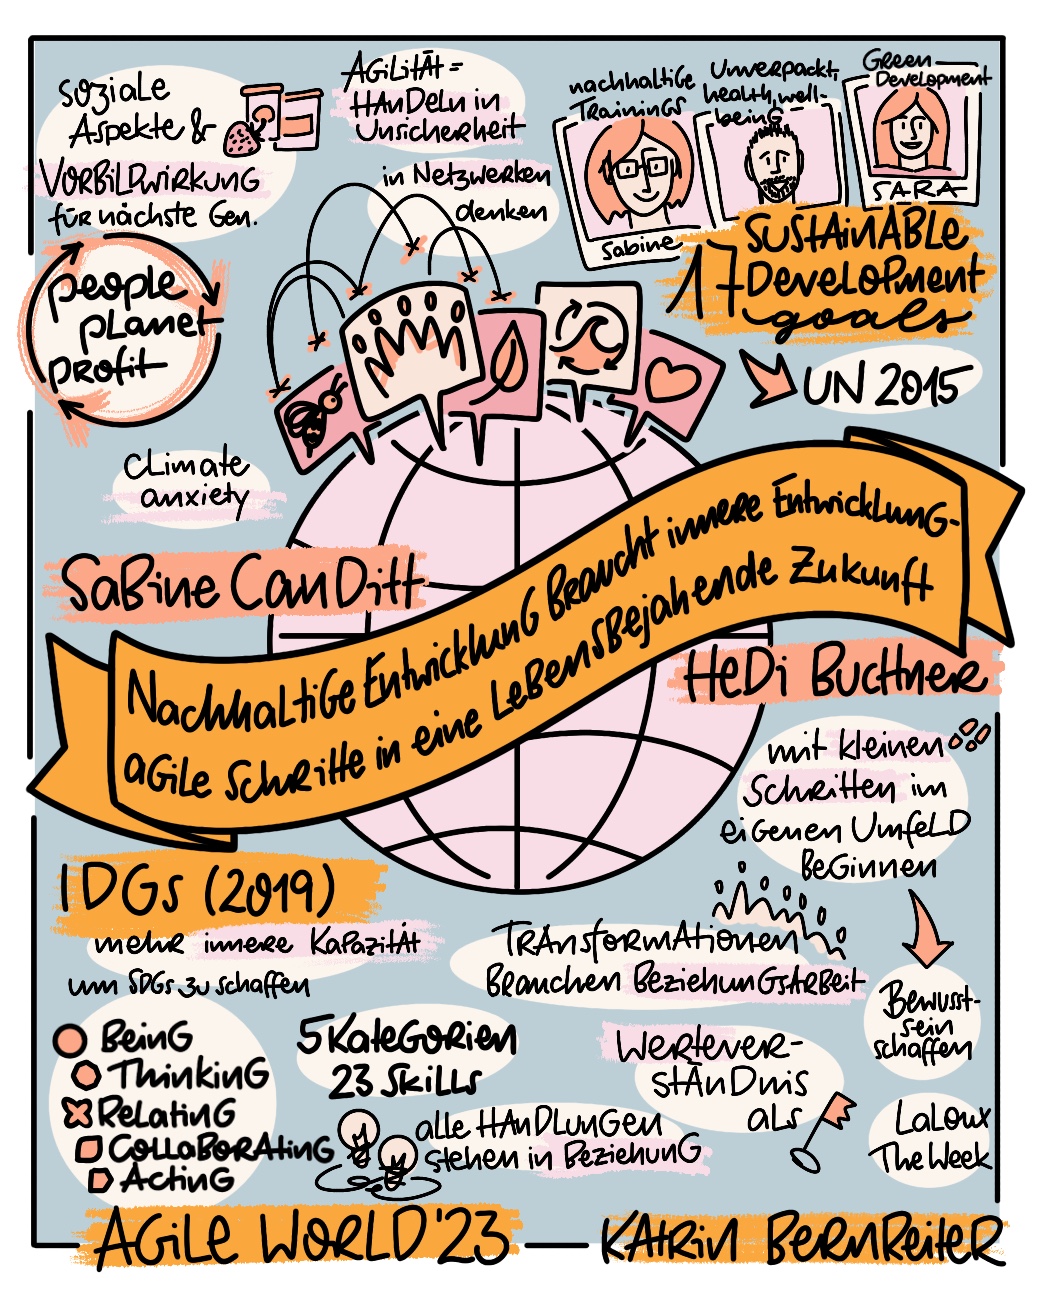 soziale
Aspekte &
Vorbildwirkung
für nächste Gen.
Agilität =
Handeln in
Unsicherheit
in Netzwerken
denken
nachhaltige
Trainings
Unverpackt,
health, well-
being
Green
Development
Sabine
SARA
17 Sustainable
Development
goals
UN 2015
people
planet
profit
Climate
anxiety
Sabine Canditt
Nachhaltige Entwicklung braucht innere Entwicklung-
agile Schritte in eine lebensbejahende Zukunft
Hedi Buchner
mit kleinen
Schritten im
eigenen Umfeld
beginnen
IDGs (2019)
mehr innere Kapazität
um SDGs zu schaffen
Transformationen
brauchen Beziehungsarbeit
Bewusst-
sein
schaffen
Being
Thinking
Relating
Collaborating
Acting
5 Kategorien
23 Skills
alle Handlungen
stehen in Beziehung
Wertever-
ständnis
als
Laloux
The Week
Agile World '23
Katrin Bernreiter